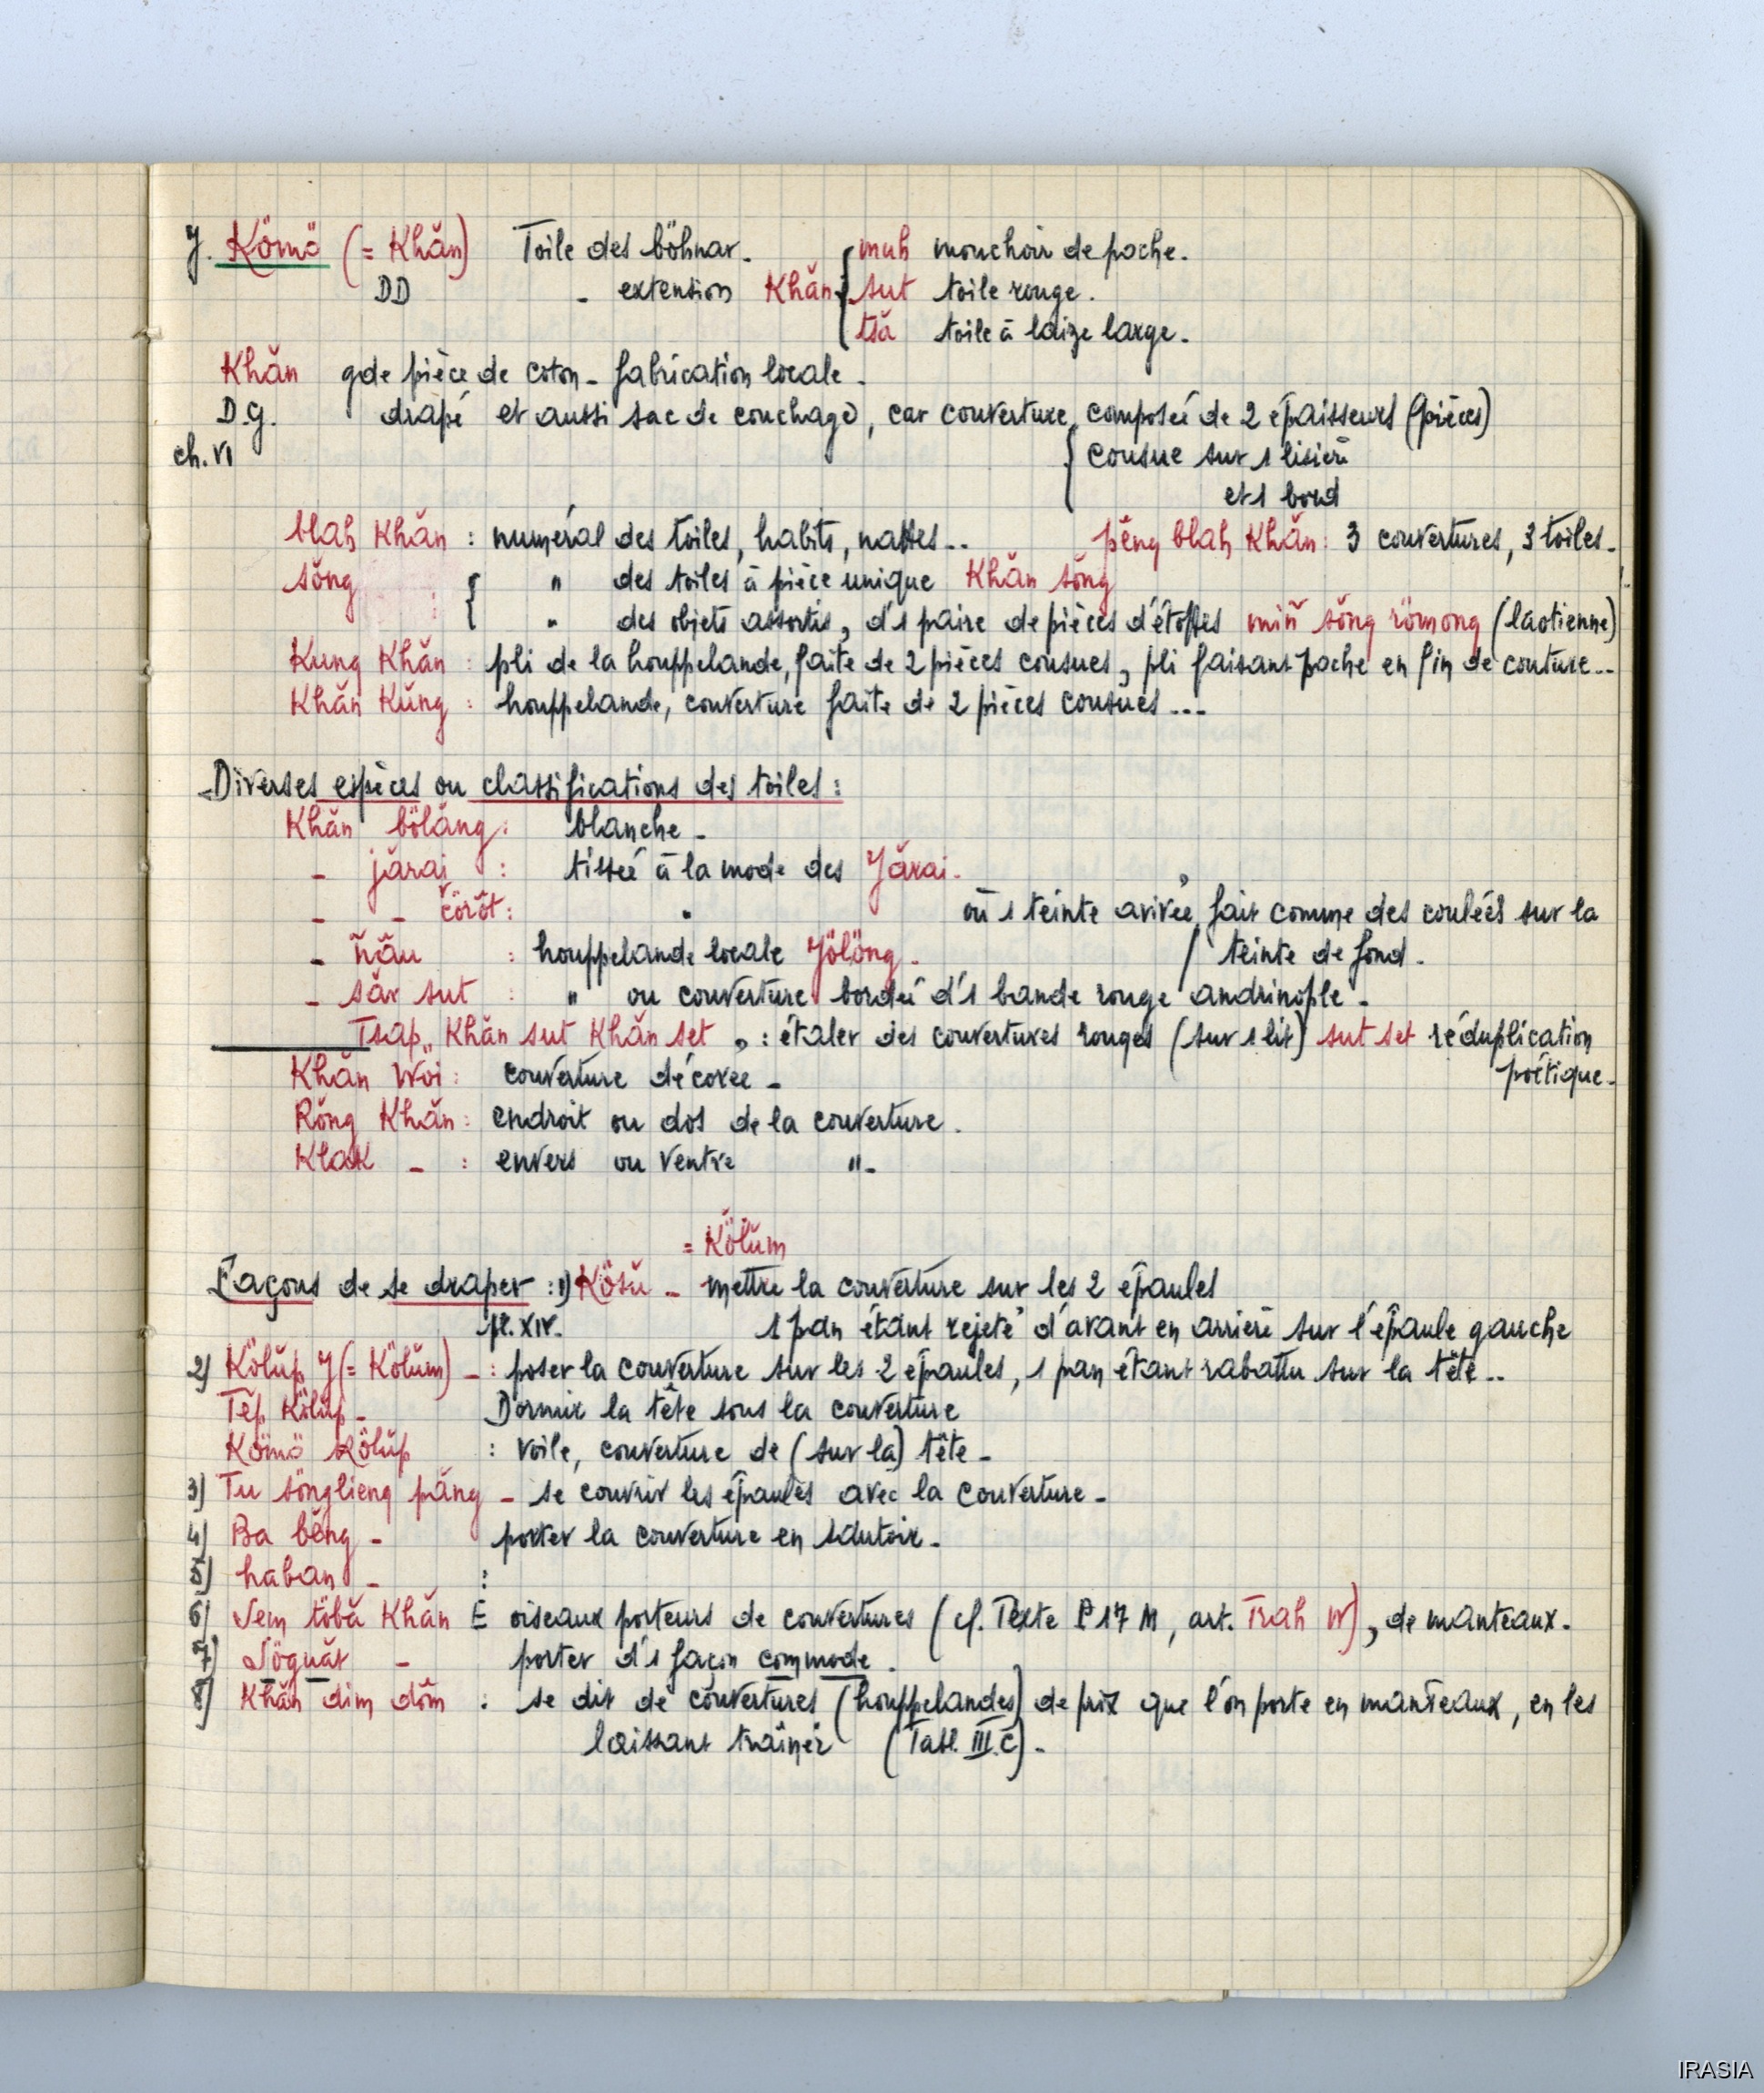 J. Kömö (= Khăn) Toile des böhnar. muh mouchoir de poche.
DD - extension Khăn sut toile rouge.
tsă toile à laize large.
Khăn gde pièce de coton - fabrication locale -
D.G. drapé et aussi sac de couchage, car couverture, composée de 2 épaisseurs (pièces)
ch. VI cousue sur 1 lisière
et 1 bord
blah Khăn : numéral des toiles, habits, nattes .. pĕng blah Khăn : 3 couvertures, 3 toiles -
sŏng " des toiles à pièce unique Khăn sŏng
" des objets assortis, d'1 paire de pièces d'étoffes miñ sŏng römong (laotienne)
Kung Khăn : pli de la houppelande, faite de 2 pièces cousues, pli faisant poche en fin de couture...
Khăn Kŭng : houppelande, couverture faite de 2 pièces cousues ...
Diverses espèces ou classifications des toiles :
Khăn bölăng : blanche -
- jărai : tissée à la mode des Jărai -
- - cörŏt : " où 1 teinte avivée fait comme des coulées sur la
- ñău : houppelande locale Jölöng - / teinte de fond .
- săr sut : " ou couverture bordée d'1 bande rouge andrinople -
Tsap Khăn sut Khăn set : étaler des couvertures rouges (sur 1 lit) sut set réduplication
Khăn Wöi : couverture décorée - poétique -
Rŏng Khăn : endroit ou dos de la couverture .
Klak - : envers ou ventre " -
= Kölŭm
Façons de se draper : 1) Kösŭ - mettre la couverture sur les 2 épaules
pl. XIV. 1 pan étant rejeté d'avant en arrière sur l'épaule gauche
2) Kölŭp J (= Kölŭm) - : poser la couverture sur les 2 épaules, 1 pan étant rabattu sur la tête ..
Tĕp Kölŭp - Dormir la tête sous la couverture
Kömö Kölŭp : voile, couverture de (sur la) tête -
3) Tu sönglieng păng - se couvrir les épaules avec la couverture -
4) Ba bĕng - porter la couverture en sautoir -
5) haban - :
6) Sem töbă Khăn E oiseaux porteurs de couvertures (cf. Texte P 17 M, art. Trah W), de manteaux -
7) Söguăt - porter d'1 façon commode .
8) Khăn dim dôm : se dit de couvertures (houppelandes) de prix que l'on porte en manteaux, en les
laissant traîner (Tabl. III. C) -
IRASIA